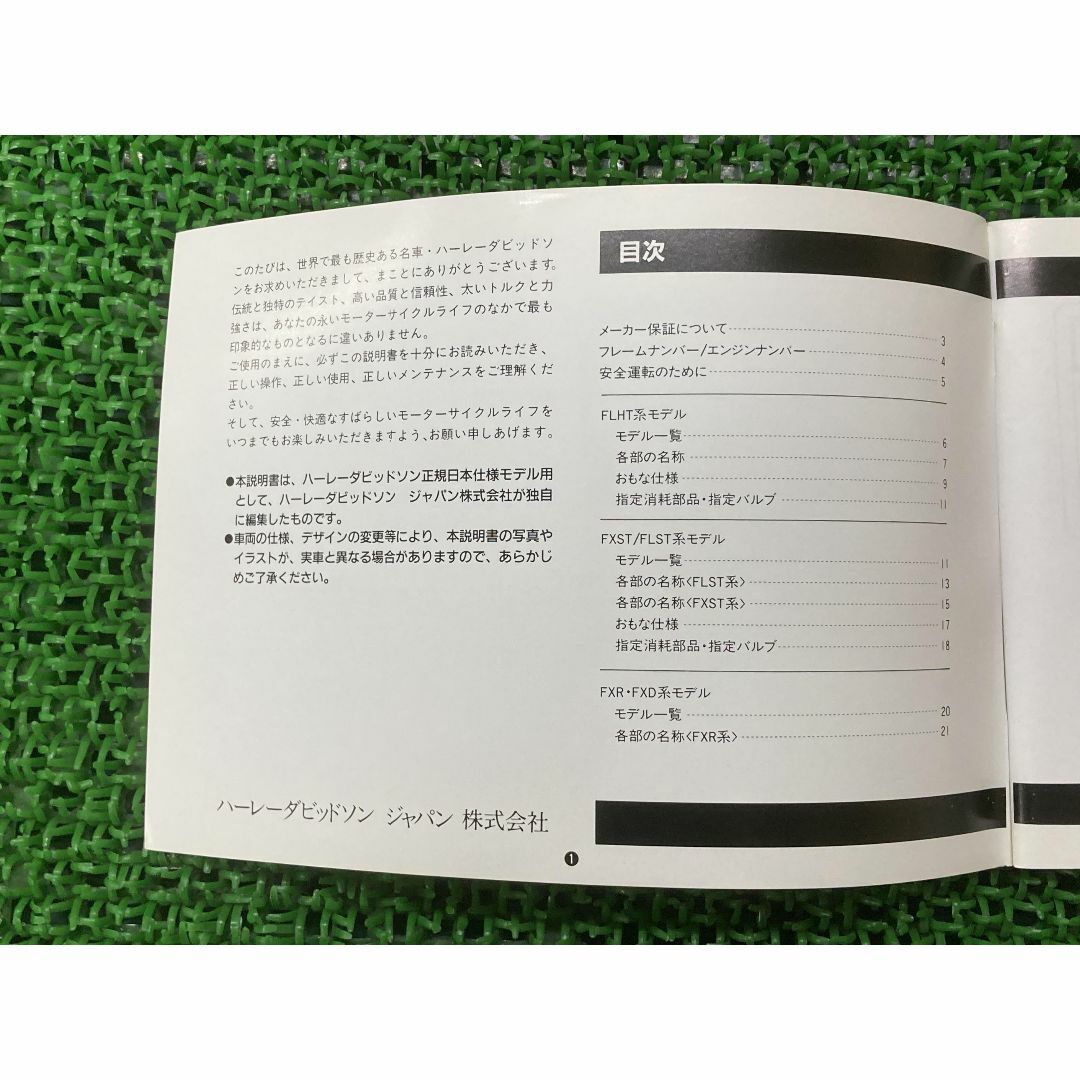 このたびは、世界で最も歴史ある名車・ハーレーダビッドソ
ンをお求めいただきまして、まことにありがとうございます。
伝統と独特のテイスト、高い品質と信頼性、太いトルクと力
強さは、あなたの永いモーターサイクルライフのなかで最も
印象的なものとなるに違いありません。
ご使用のまえに、必ずこの説明書を十分にお読みいただき、
正しい操作、正しい使用、正しいメンテナンスをご理解くだ
さい。
そして、安全・快適なすばらしいモーターサイクルライフを
いつまでもお楽しみいただきますよう、お願い申しあげます。
●本説明書は、ハーレーダビッドソン正規日本仕様モデル用
として、ハーレーダビッドソン ジャパン株式会社が独自
に編集したものです。
●車両の仕様、デザインの変更等により、本説明書の写真や
イラストが、実車と異なる場合がありますので、あらかじ
めご了承ください。
ハーレーダビッドソン ジャパン 株式会社
目次
メーカー保証について 3
フレームナンバー/エンジンナンバー 4
安全運転のために 5
FLHT系モデル
モデル一覧 6
各部の名称 7
おもな仕様 9
指定消耗部品・指定バルブ 11
FXST/FLST系モデル
モデル一覧 11
各部の名称〈FLST系〉 13
各部の名称〈FXST系〉 15
おもな仕様 17
指定消耗部品・指定バルブ 18
FXR・FXD系モデル
モデル一覧 20
各部の名称〈FXR系〉 21
1